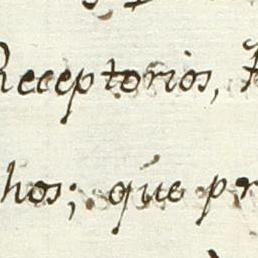 Receptorios,
hos; que pr